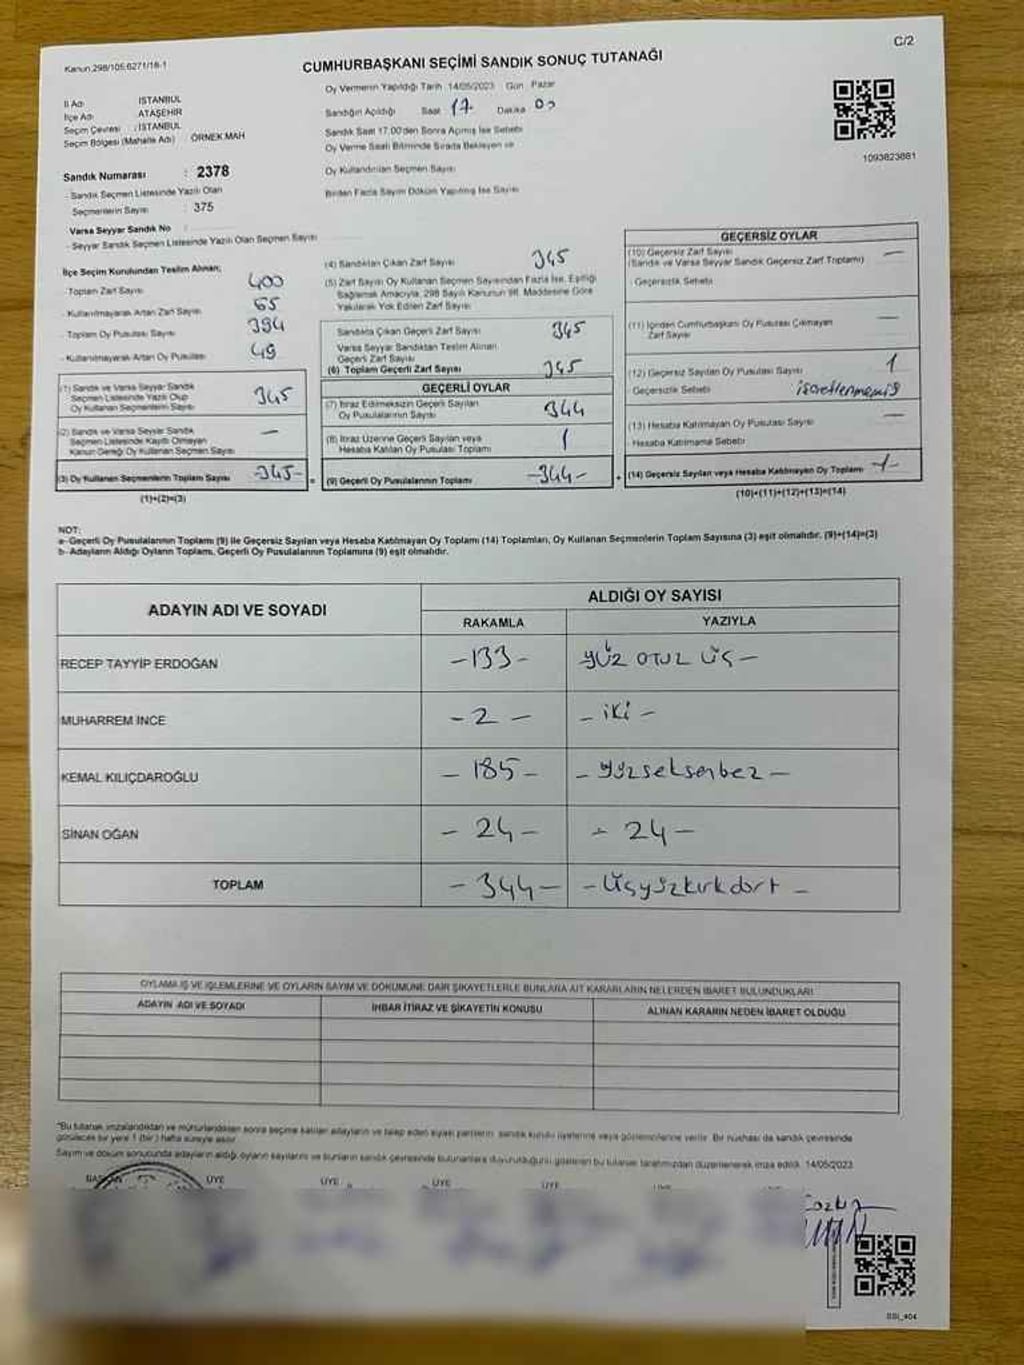 C/2
Kanun.298/105.6271/18-1
CUMHURBAŞKANI SEÇİMİ SANDIK SONUÇ TUTANAĞI
Oy Vermenin Yapıldığı Tarih 14/05/2023 Gün Pazar
İl Adı İSTANBUL
İlçe Adı ATAŞEHİR
Seçim Çevresi : İSTANBUL
Seçim Bölgesi (Mahalle Adı) ÖRNEK MAH
Sandığın Açıldığı Saat 17 Dakika 00
Sandık Saat 17.00'den Sonra Açılmış İse Sebebi
Oy Verme Saati Bitiminde Sırada Bekleyen ve
Oy Kullandırılan Seçmen Sayısı
Birden Fazla Sayım Döküm Yapılmış İse Sayısı
1093823881
Sandık Numarası : 2378
- Sandık Seçmen Listesinde Yazılı Olan
Seçmenlerin Sayısı : 375
Varsa Seyyar Sandık No :
- Seyyar Sandık Seçmen Listesinde Yazılı Olan Seçmen Sayısı
İlçe Seçim Kurulundan Teslim Alınan;
- Toplam Zarf Sayısı 400
- Kullanılmayarak Artan Zarf Sayısı 55
- Toplam Oy Pusulası Sayısı 394
- Kullanılmayarak Artan Oy Pusulası 49
(1) Sandık ve Varsa Seyyar Sandık
Seçmen Listesinde Yazılı Olup
Oy Kullanan Seçmenlerin Sayısı 345
(2) Sandık ve Varsa Seyyar Sandık
Seçmen Listesinde Kayıtlı Olmayan
Kanun Gereği Oy Kullanan Seçmen Sayısı —
(3) Oy Kullanan Seçmenlerin Toplam Sayısı -345-
(1)+(2)=(3)
(4) Sandıktan Çıkan Zarf Sayısı 345
(5) Zarf Sayısı Oy Kullanan Seçmen Sayısından Fazla İse, Eşitliği
Sağlamak Amacıyla, 298 Sayılı Kanunun 98. Maddesine Göre
Yakılarak Yok Edilen Zarf Sayısı
Sandıkta Çıkan Geçerli Zarf Sayısı 345
Varsa Seyyar Sandıktan Teslim Alınan
Geçerli Zarf Sayısı
(6) Toplam Geçerli Zarf Sayısı 345
GEÇERLİ OYLAR
(7) İtiraz Edilmeksizin Geçerli Sayılan
Oy Pusulalarının Sayısı 344
(8) İtiraz Üzerine Geçerli Sayılan veya
Hesaba Katılan Oy Pusulası Toplamı 1
(9) Geçerli Oy Pusulalarının Toplamı -344-
GEÇERSİZ OYLAR
(10) Geçersiz Zarf Sayısı —
(Sandık ve Varsa Seyyar Sandık Geçersiz Zarf Toplamı)
- Geçersizlik Sebebi
(11) İçinden Cumhurbaşkanı Oy Pusulası Çıkmayan
Zarf Sayısı —
(12) Geçersiz Sayılan Oy Pusulası Sayısı 1
Geçersizlik Sebebi işaretlenmemiş
(13) Hesaba Katılmayan Oy Pusulası Sayısı —
- Hesaba Katılmama Sebebi
(14) Geçersiz Sayılan veya Hesaba Katılmayan Oy Toplamı -1-
(10)+(11)+(12)+(13)=(14)
NOT:
a- Geçerli Oy Pusulalarının Toplamı (9) ile Geçersiz Sayılan veya Hesaba Katılmayan Oy Toplamı (14) Toplamları, Oy Kullanan Seçmenlerin Toplam Sayısına (3) eşit olmalıdır. (9)+(14)=(3)
b- Adayların Aldığı Oyların Toplamı, Geçerli Oy Pusulalarının Toplamına (9) eşit olmalıdır.
ADAYIN ADI VE SOYADI ALDIĞI OY SAYISI
RAKAMLA YAZIYLA
RECEP TAYYİP ERDOĞAN -133- yüz otuz üç -
MUHARREM İNCE - 2 - - iki -
KEMAL KILIÇDAROĞLU - 185 - - yüzseksenbeş -
SİNAN OĞAN - 24 - - 24 -
TOPLAM - 344 - - üçyüzkırkdört -
OYLAMA İŞ VE İŞLEMLERİNE VE OYLARIN SAYIM VE DÖKÜMÜNE DAİR ŞİKAYETLERLE BUNLARA AİT KARARLARIN NELERDEN İBARET BULUNDUKLARI
ADAYIN ADI VE SOYADI İHBAR İTİRAZ VE ŞİKAYETİN KONUSU ALINAN KARARIN NEDEN İBARET OLDUĞU
*Bu tutanak imzalandıktan ve mühürlendikten sonra seçime katılan adayların ve talep eden siyasi partilerin sandık kurulu üyelerine veya gözlemcilerine verilir. Bir nüshası da sandık çevresinde
görülecek bir yere 1 (bir) hafta süreyle asılır.
Sayım ve döküm sonucunda adayların aldığı oyların sayılarını ve bunların sandık çevresinde bulunanlara duyurulduğunu gösteren bu tutanak tarafımızdan düzenlenerek imza edildi. 14/05/2023
BAŞKAN ÜYE ÜYE ÜYE ÜYE
SSİ_404